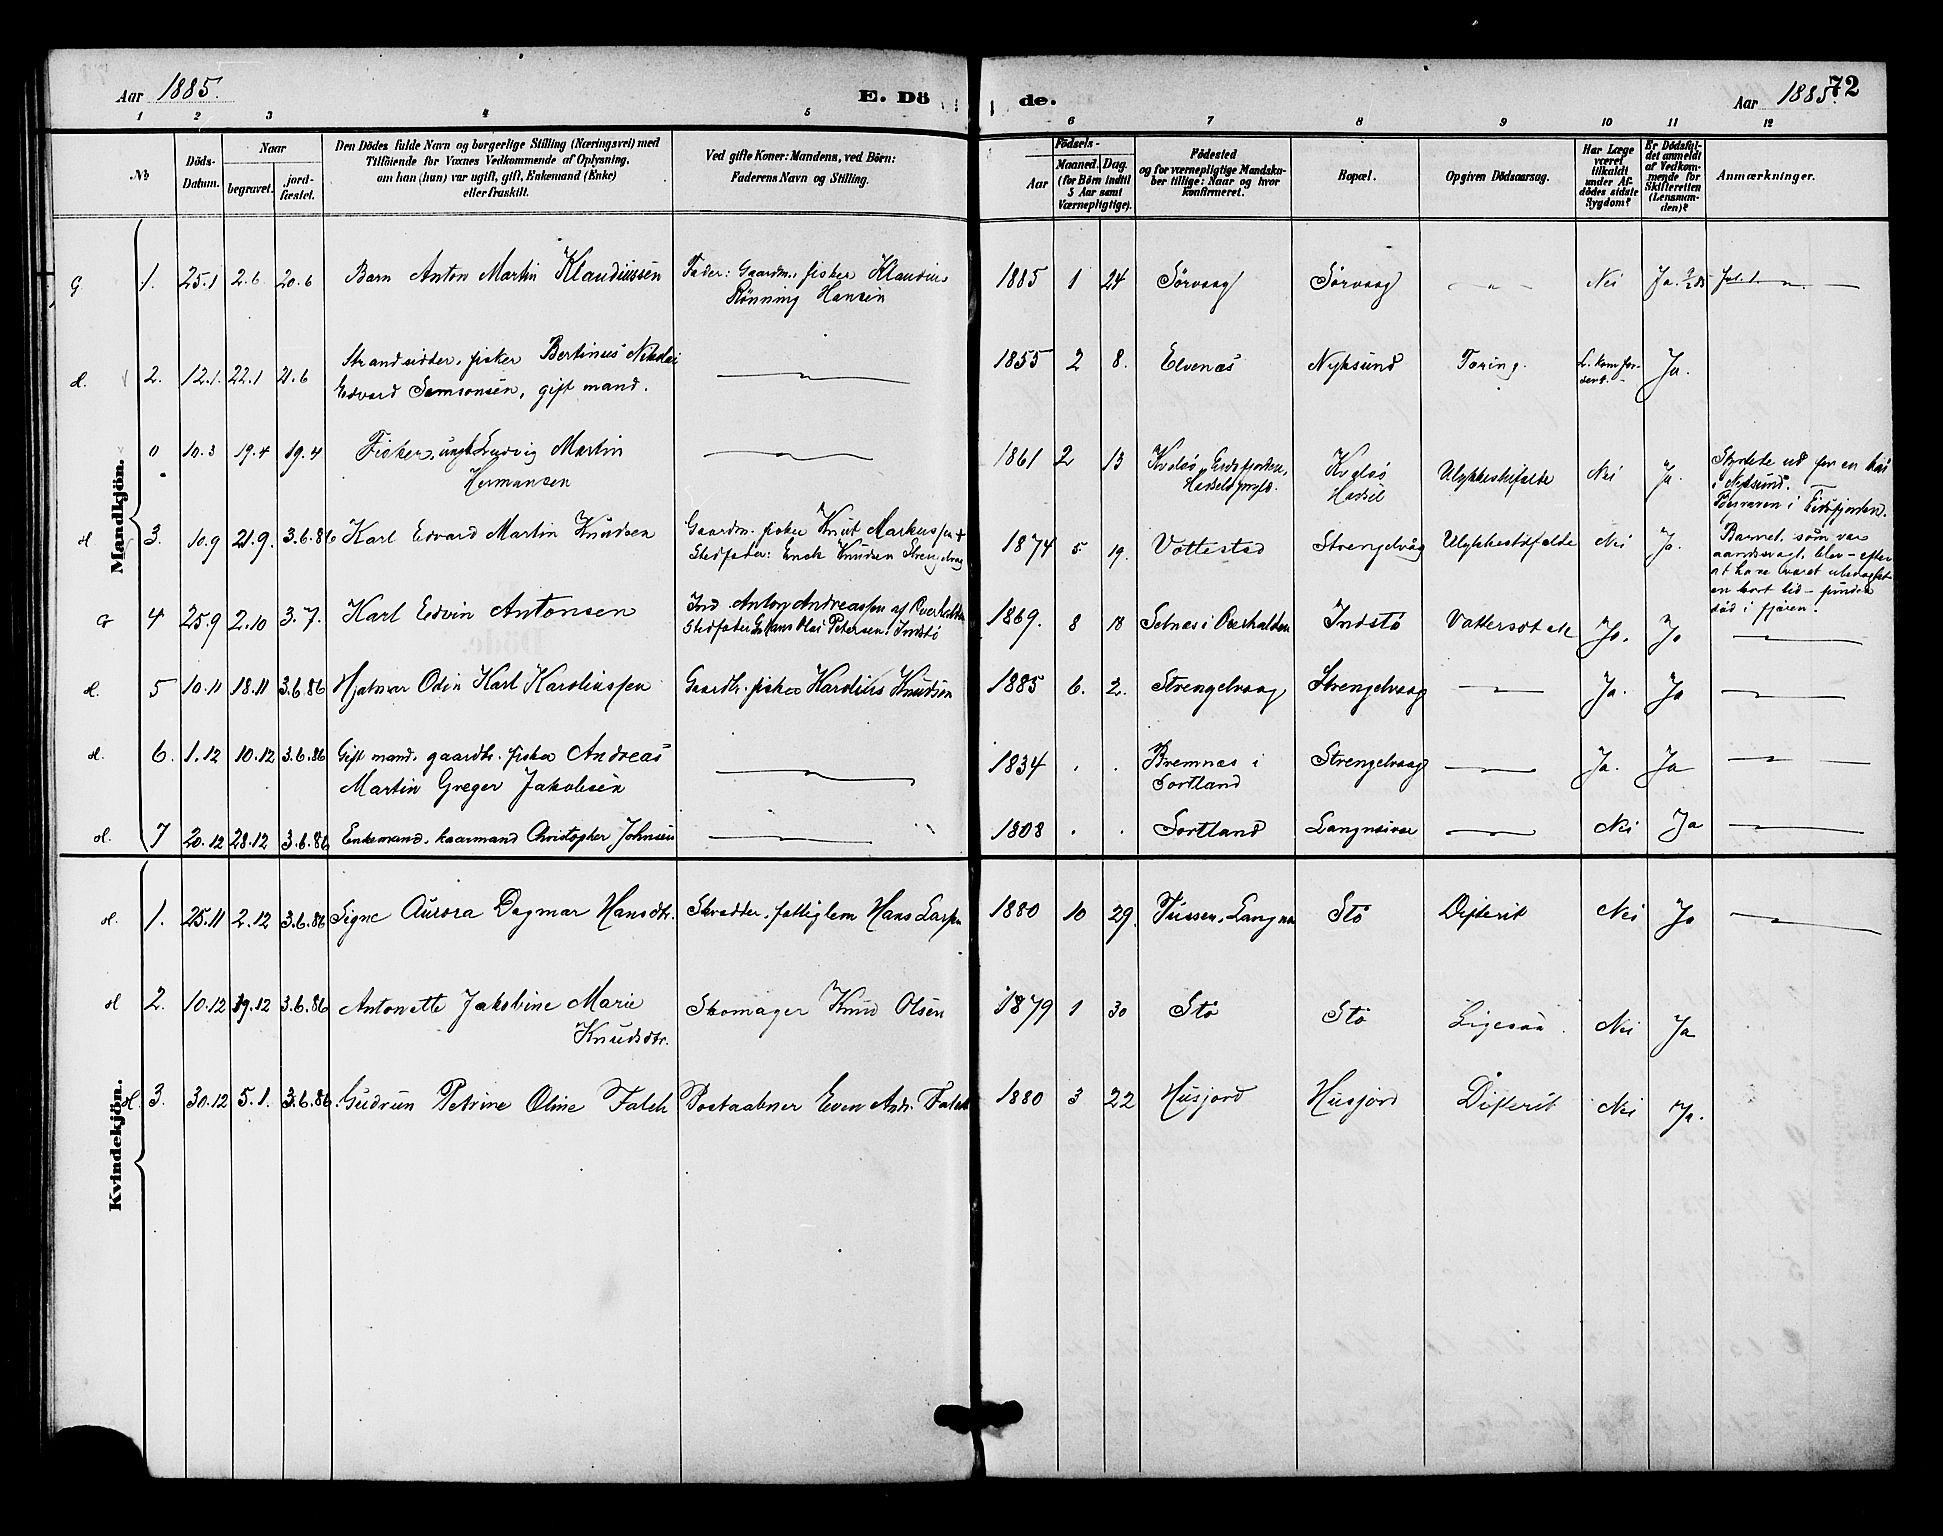 Aar 1885.
E. Döde.
Aar 1885.
72
1 2 3 4 5 6 7 8 9 10 11 12
№
Döds-Datum.
Naar
begravet.
jord-fæstet.
Den Dödes fulde Navn og borgerlige Stilling (Næringsvei) med
Tilföiende for Voxnes Vedkommende af Oplysning,
om han (hun) var ugift, gift, Enkemand (Enke)
eller fraskilt.
Ved gifte Koner: Mandens, ved Börn:
Faderens Navn og Stilling.
Födsels-
Aar
Maaned. Dag.
(for Börn indtil
5 Aar samt
Værnepligtige).
Födested
og for værnepligtige Mandskaber tillige: Naar og hvor
konfirmeret.
Bopæl.
Opgiven Dödsaarsag.
Har Læge
været
tilkaldt
under Afdödes sidste
Sygdom?
Er Dödsfaldet anmeldt
af Vedkommende for
Skifteretten
(Lensmanden)?
Anmærkninger.
Mandkjön.
G 1. 25.1 2.6 20.6 Barn Anton Martin Klaudiussen Fader: Gaardm., fisker Klaudius 1885 1 24 Sörvaag Sörvaag Nei Ja.
Rönning Hansen
d. 2. 12.1. 22.1 21.6 Strandsidder, fisker Bertinus Nikolai 1855 2 8. Elvenæs Nyksund Toring. Ja.
Edvard Samsonsen, gift mand.
0 10.3 19.4 19.4 Fisker, ungk. Ludvig Martin 1861 2 13 Kvalsö, Eidsfjorden, Kvalsö Ulykkestilfælde Nei Ja. Styrtede ud for en kai
Hermansen Hadsel i Nyksund.
Begraven i Eidsfjorden.
d 3. 10.9 21.9. 3.6.86 Karl Edvard Martin Knudsen Gaardm. fisker Knut Markussen 1874 5 19. Vottestad Strengelvåg Ulykkestilfælde Nei Ja. Barnet, som var
Stedfader: Enok Knudsen Strengelvåg aandssvagt, blev – efter
at have været
en kort tid – funden
död i fjæren.
G 4 25.9 2.10 3.7. Karl Edvin Antonsen Ind. Anton Andreassen af Overhalden 1869. 8 18 Setnæs i Overhalden Indstö Vattersot Ja. Ja
Stedfader Hans Olai Petersen, Indstö
d. 5 10.11 18.11 3.6.86 Hjalmar Odin Karl Karoliussen Gaardbr. fisker Karolius Knudsen 1885 6. 2. Strengelvaag Strengelvaag Ja. Ja
d. 6. 1.12 10.12 3.6.86 Gift mand, gaardbr. fisker Andreas 1834 . . Bremnes i Strengelvaag Ja. Ja
Martin Greger Jakobsen Sortland
d. 7 20.12 28.12 3.6.86 Enkemand, kaarmand Christopher Johnsen 1808 . . Sortland Nei Ja
Kvindekjön.
d. 1. 25.11 2.12 3.6.86 Signe Aurora Dagmar Hansdtr. Skrædder, fattiglem Hans Larsen 1880 10 29. Tussen, Langnæs Stö Difterit Nei Ja
d 2. 10.12 19.12 3.6.86 Antonette Jakobine Marie Skomager Knud Olsen 1879 1 30 Stö Stö Ligesaa. Nei Ja
Knudsdtr.
d. 3. 30.12 5.1. 3.6.86. Gudrun Petrine Oline Falch Postaabner Even Andr. Falch 1880 3 22 Husjord Husjord Difterit Nei Ja.